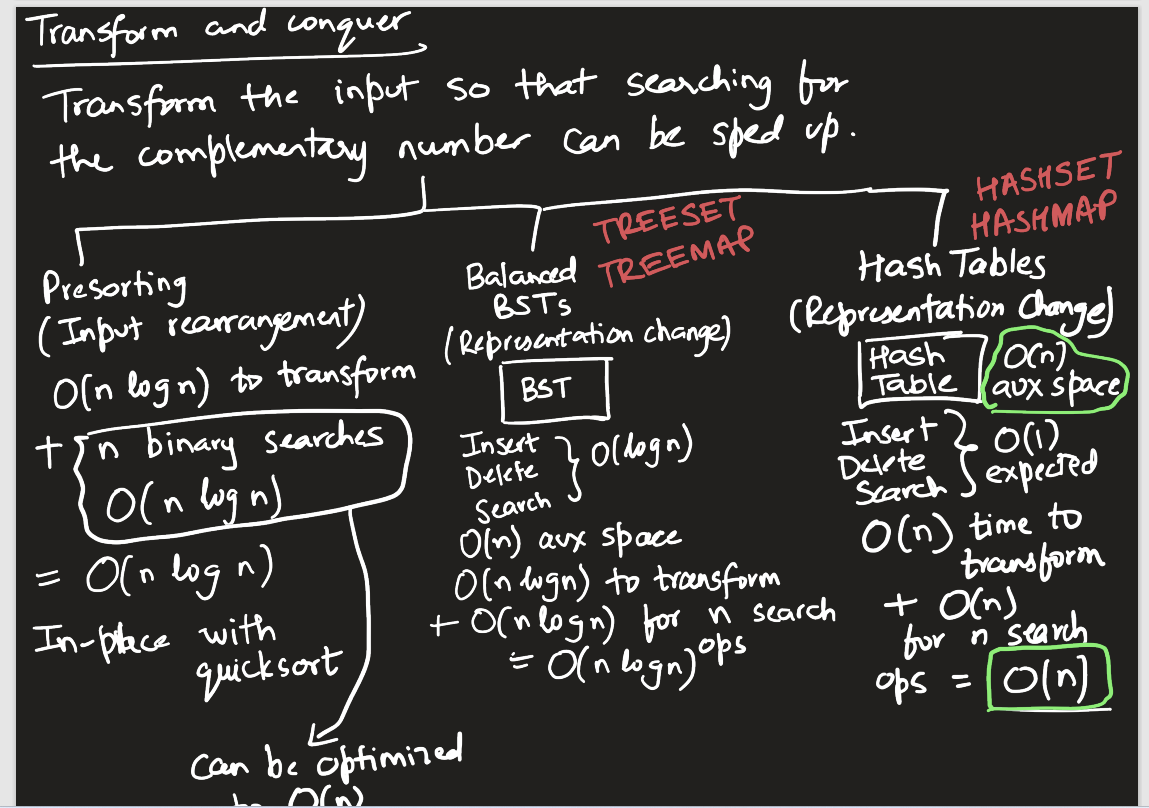 Transform and conquer
Transform the input so that searching for
the complementary number can be sped up.
Presorting
(Input rearrangement)
O(n log n) to transform
+ n binary searches
O(n log n)
= O(n log n)
In-place with
quicksort
can be optimized
to O(n)
TREESET
TREEMAP
Balanced
BSTs
(Representation change)
BST
Insert
Delete
Search
O(log n)
O(n) aux space
O(n logn) to transform
+ O(n log n) for n search
ops
= O(n log n)
HASHSET
HASHMAP
Hash Tables
(Representation Change)
Hash
Table
O(n)
aux space
Insert
Delete
Search
O(1)
expected
O(n) time to
transform
+ O(n)
for n search
ops = O(n)